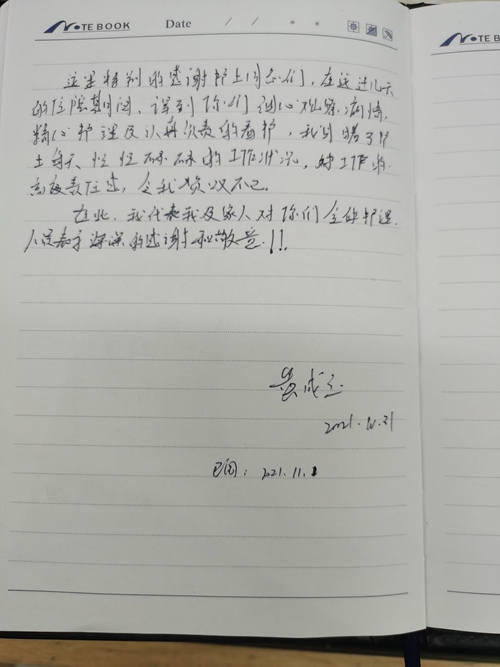 NOTE BOOK Date / /
这里特别的感谢护士同志们，在这近几天
的住院期间，得到你们细心观察病情，
精心护理及认真负责的看护，我目睹了护
士每天忙忙碌碌的工作状况，对工作的
高度责任感，令我赞叹不已。
在此，我代表我及家人对你们全体护理
人员表示深深的感谢和敬意!!!
黄成
2021.10.31
已阅：2021.11.1
NOTE B